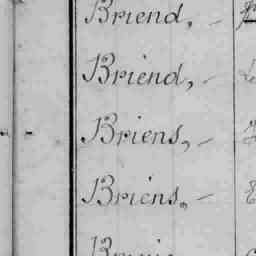 Briend, -
Briend, -
Briens, -
Briens, -